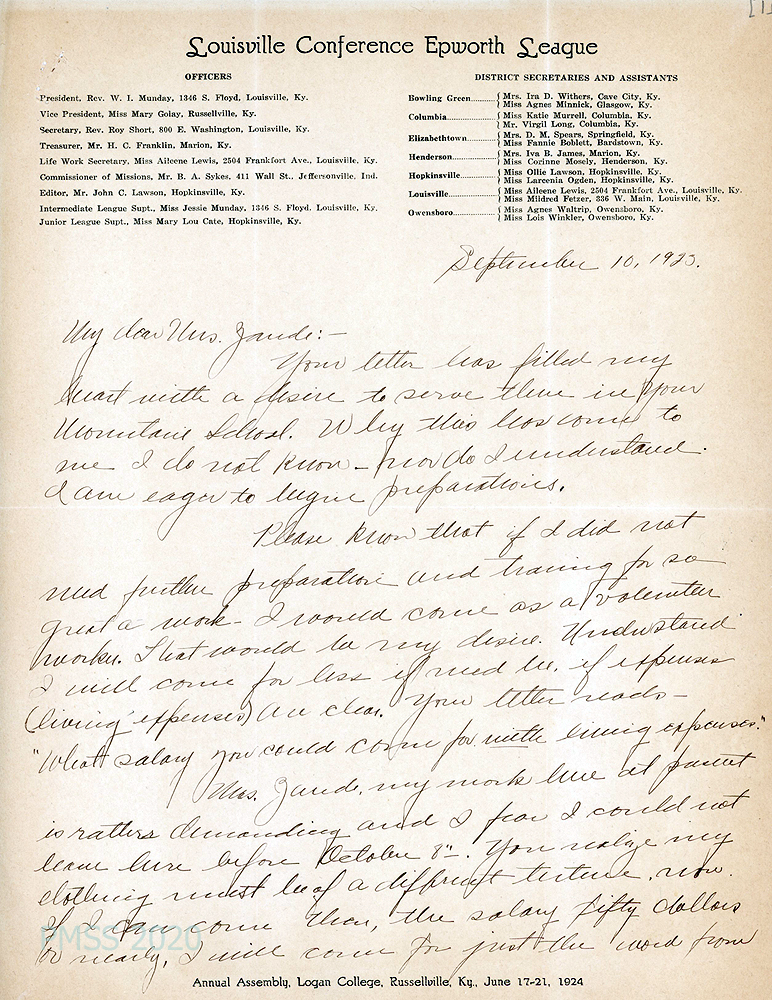 [1]
Louisville Conference Epworth League
OFFICERS
President, Rev. W. I. Munday, 1346 S. Floyd, Louisville, Ky.
Vice President, Miss Mary Golay, Russellville, Ky.
Secretary, Rev. Roy Short, 800 E. Washington, Louisville, Ky.
Treasurer, Mr. H. C. Franklin, Marion, Ky.
Life Work Secretary, Miss Aileene Lewis, 2504 Frankfort Ave., Louisville, Ky.
Commissioner of Missions, Mr. B. A. Sykes, 411 Wall St., Jeffersonville, Ind.
Editor, Mr. John C. Lawson, Hopkinsville, Ky.
Intermediate League Supt., Miss Jessie Munday, 1346 S. Floyd, Louisville, Ky.
Junior League Supt., Miss Mary Lou Cate, Hopkinsville, Ky.
DISTRICT SECRETARIES AND ASSISTANTS
Bowling Green { Mrs. Ira D. Withers, Cave City, Ky.
Miss Agnes Minnick, Glasgow, Ky.
Columbia { Miss Katie Murrell, Columbia, Ky.
Mr. Virgil Long, Columbia, Ky.
Elizabethtown { Mrs. D. M. Spears, Springfield, Ky.
Miss Fannie Boblett, Bardstown, Ky.
Henderson { Mrs. Iva B. James, Marion, Ky.
Miss Corinne Mosely, Henderson, Ky.
Hopkinsville { Miss Ollie Lawson, Hopkinsville, Ky.
Miss Lareenia Ogden, Hopkinsville, Ky.
Louisville { Miss Aileene Lewis, 2504 Frankfort Ave., Louisville, Ky.
Miss Mildred Fetzer, 336 W. Main, Louisville, Ky.
Owensboro { Miss Agnes Waltrip, Owensboro, Ky.
Miss Lois Winkler, Owensboro, Ky.
September 10, 1923.
My dear Mrs. Zande:-
Your letter has filled my
heart with a desire to serve there in your
Mountain School. Why this has come to
me I do not know - nor do I understand.
I am eager to begin preparations.
Please know that if I did not
need further preparation and training for so
great a work - I would come as a volunteer
worker. That would be my desire. Understand
I will come for less if need be, if expenses
(living expenses) are clear. Your letter reads -
"What salary you could come for with living expenses."
Mrs. Zande, my work here at present
is rather demanding and I fear I could not
leave here before October 8th. You realize my
clothing must be of a different texture, now.
If I can come then, the salary fifty dollars
or nearly, I will come for just the word from
PMSS 2020
Annual Assembly, Logan College, Russellville, Ky., June 17-21, 1924